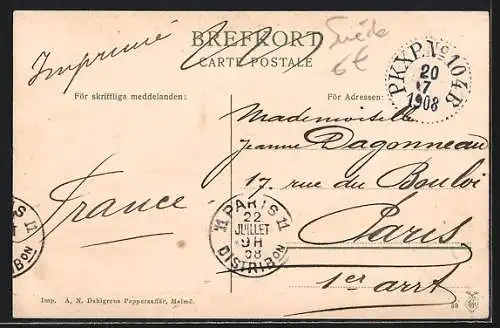 Imprimé
BREFKORT
CARTE POSTALE
Suède
6€
PKXP. No 104 B
20
7
1908
För skriftliga meddelanden:
För Adressen:
Mademoiselle
Jeanne Dagonneau
17. rue du Bouloi
Paris
1er arrt
France
PARIS 11
22
JUILLET
9H
08
DISTRIBON
11
S 11
IBON
Imp. A. N. Dahlgrens Pappersaffär, Malmö.